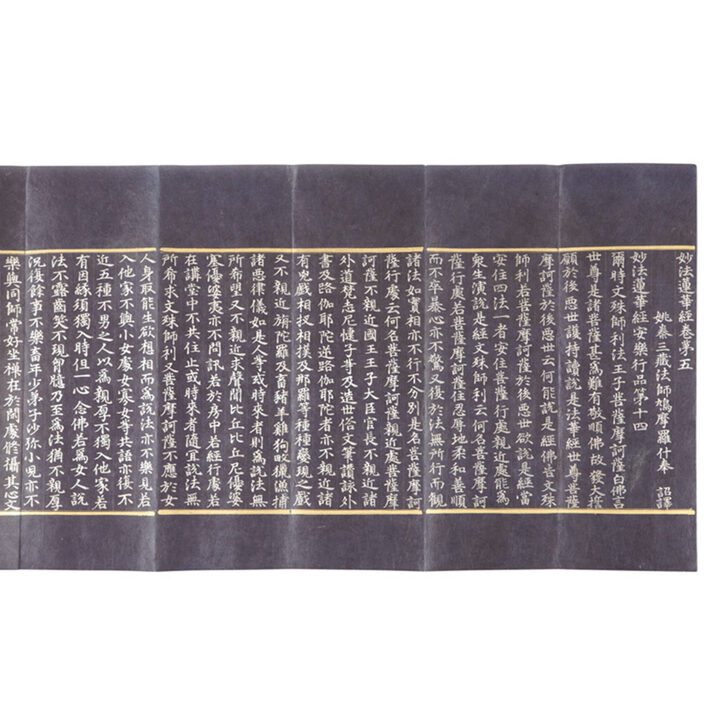 妙法蓮華經卷第五
姚秦三藏法師鳩摩羅什奉 詔譯
妙法蓮華經安樂行品第十四
爾時文殊師利法王子菩薩摩訶薩白佛言
世尊是諸菩薩甚為難有敬順佛故發大誓
願於後惡世護持讀說是法華經世尊菩薩
摩訶薩於後惡世云何能說是經佛告文殊
師利若菩薩摩訶薩於後惡世欲說是經當
安住四法一者安住菩薩行處親近處能為
衆生演說是經文殊師利云何名菩薩摩訶
薩行處若菩薩摩訶薩住忍辱地柔和善順
而不卒暴心亦不驚又復於法無所行而觀
諸法如實相亦不行不分別是名菩薩摩訶
薩行處云何名菩薩摩訶薩親近處菩薩摩
訶薩不親近國王王子大臣官長不親近諸
外道梵志尼揵子等及造世俗文筆讚詠外
書及路伽耶陀逆路伽耶陀者亦不親近諸
有兇戲相扠相撲及那羅等種種變現之戲
又不親近旃陀羅及畜猪羊雞狗畋獵漁捕
諸惡律儀如是人等或時來者則為說法無
所希望又不親近求聲聞比丘比丘尼優婆
塞優婆夷亦不問訊若於房中若經行處若
在講堂中不共住止或時來者隨宜說法無
所希求文殊師利又菩薩摩訶薩不應於女
人身取能生欲想相而為說法亦不樂見若
入他家不與小女處女寡女等共語亦復不
近五種不男之人以為親厚不獨入他家若
有因緣須獨入時但一心念佛若為女人說
法不露齒笑不現胸臆乃至為法猶不親厚
況復餘事不樂畜年少弟子沙彌小兒亦不
樂與同師常好坐禪在於閑處修攝其心文